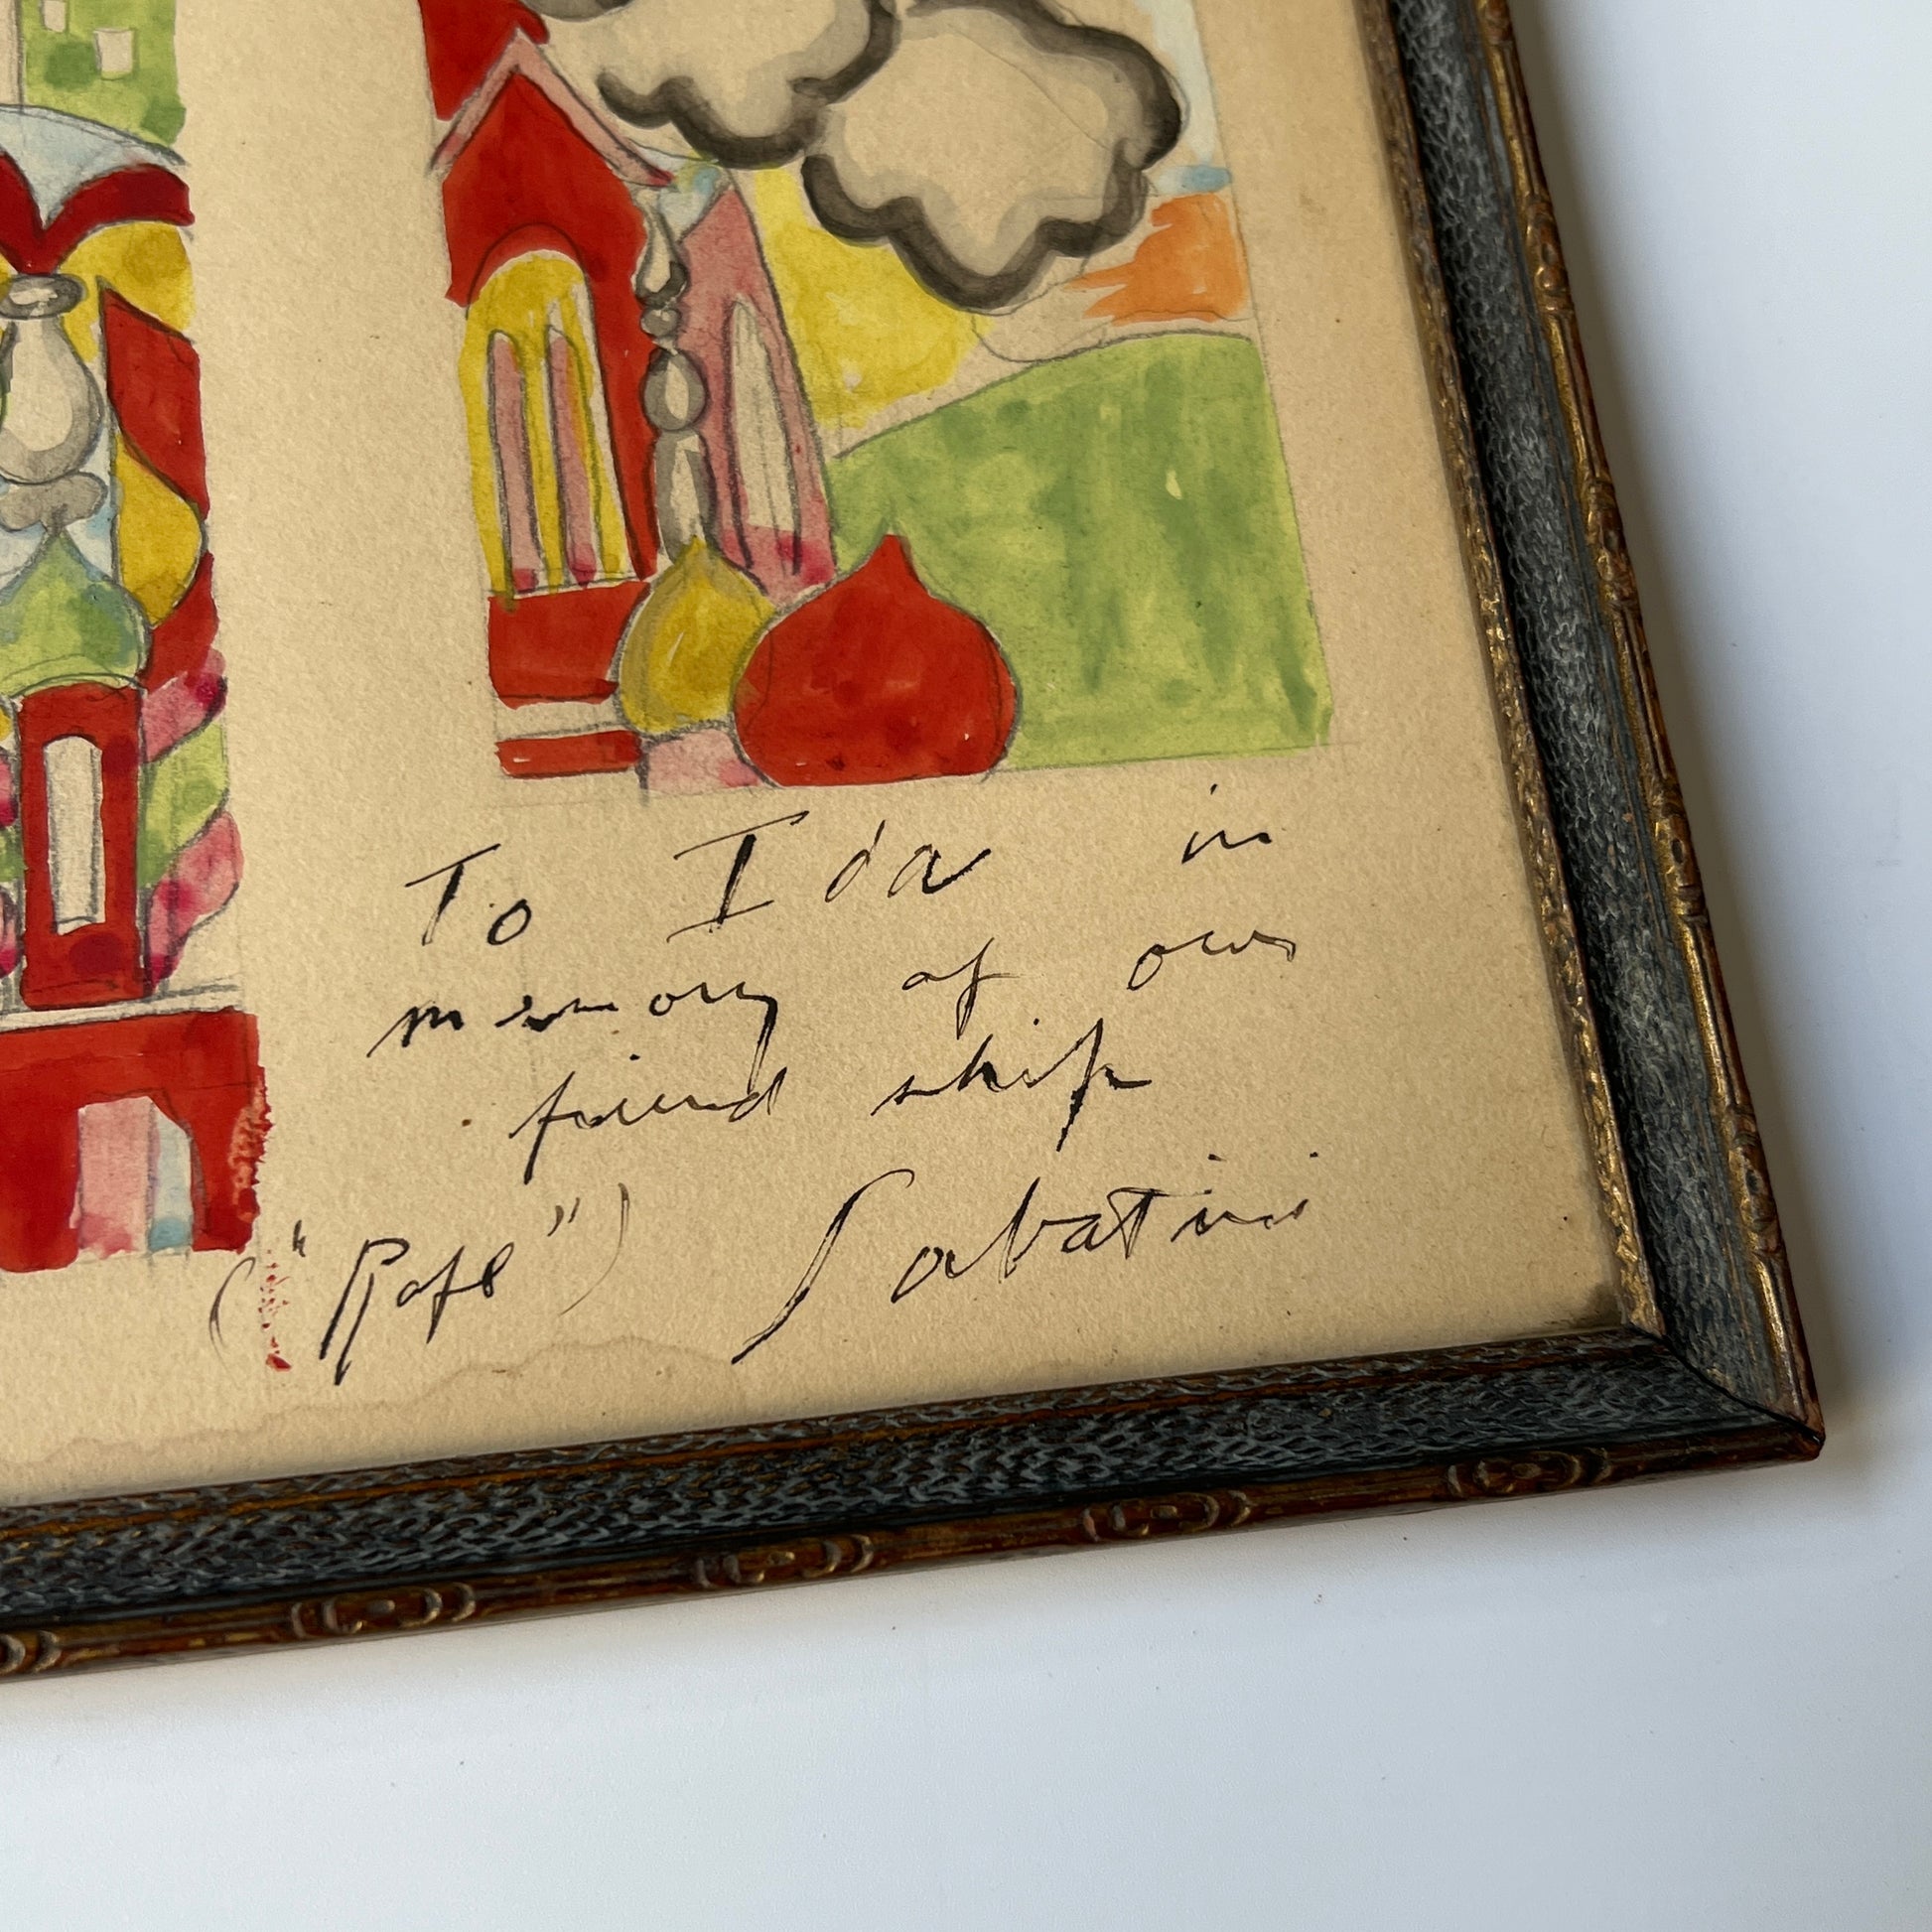 To Ida in
memory of our
friend ship
("Rafe") Sabatini